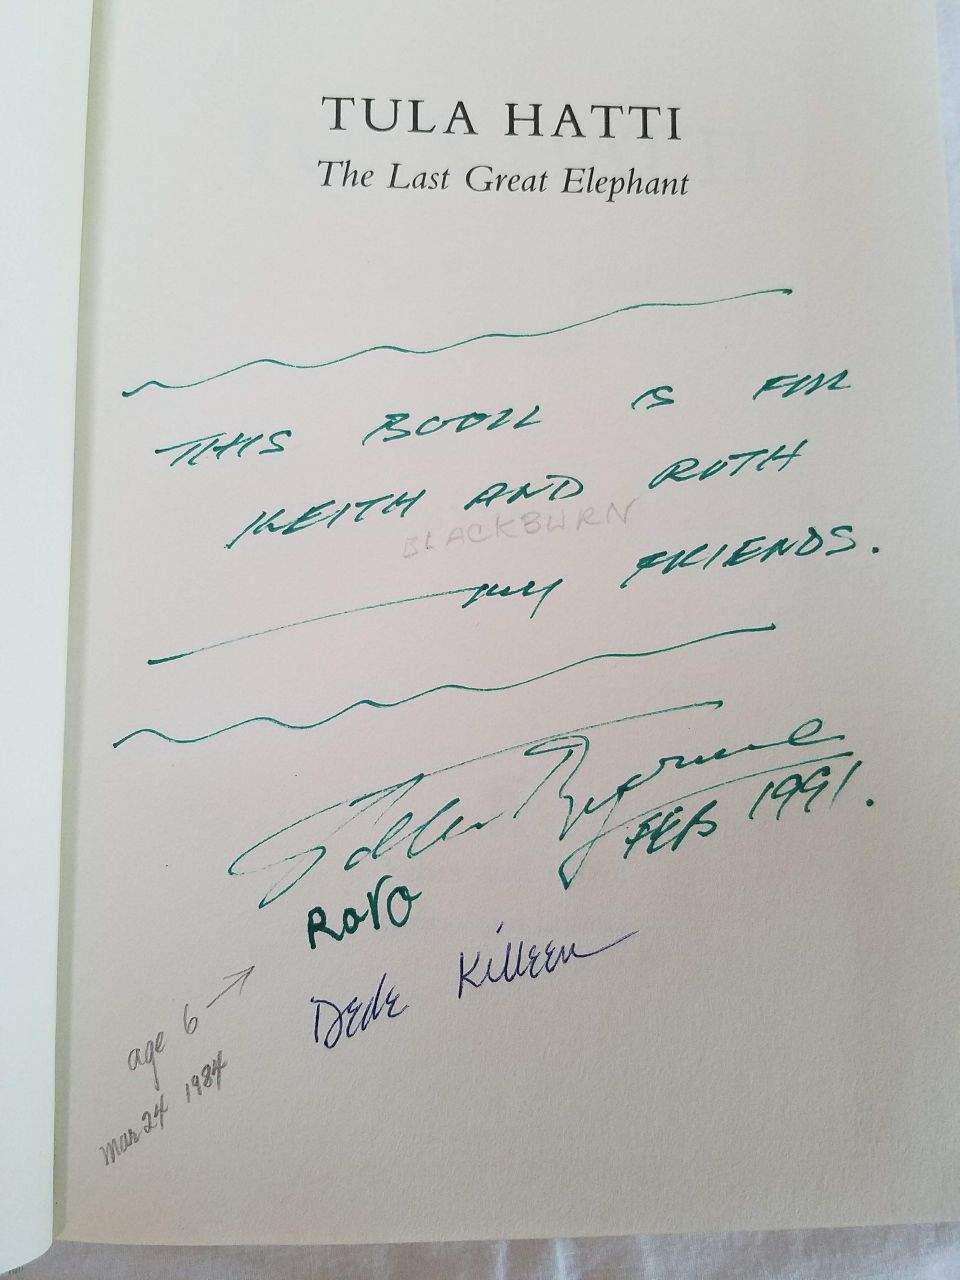 TULA HATTI
The Last Great Elephant
THIS BOOK IS FOR
KEITH AND RUTH
BLACKBURN
MY FRIENDS.
Peter Byrne
FEB 1991.
Rara
Dede Killeen
age 6
Mar 24 1984